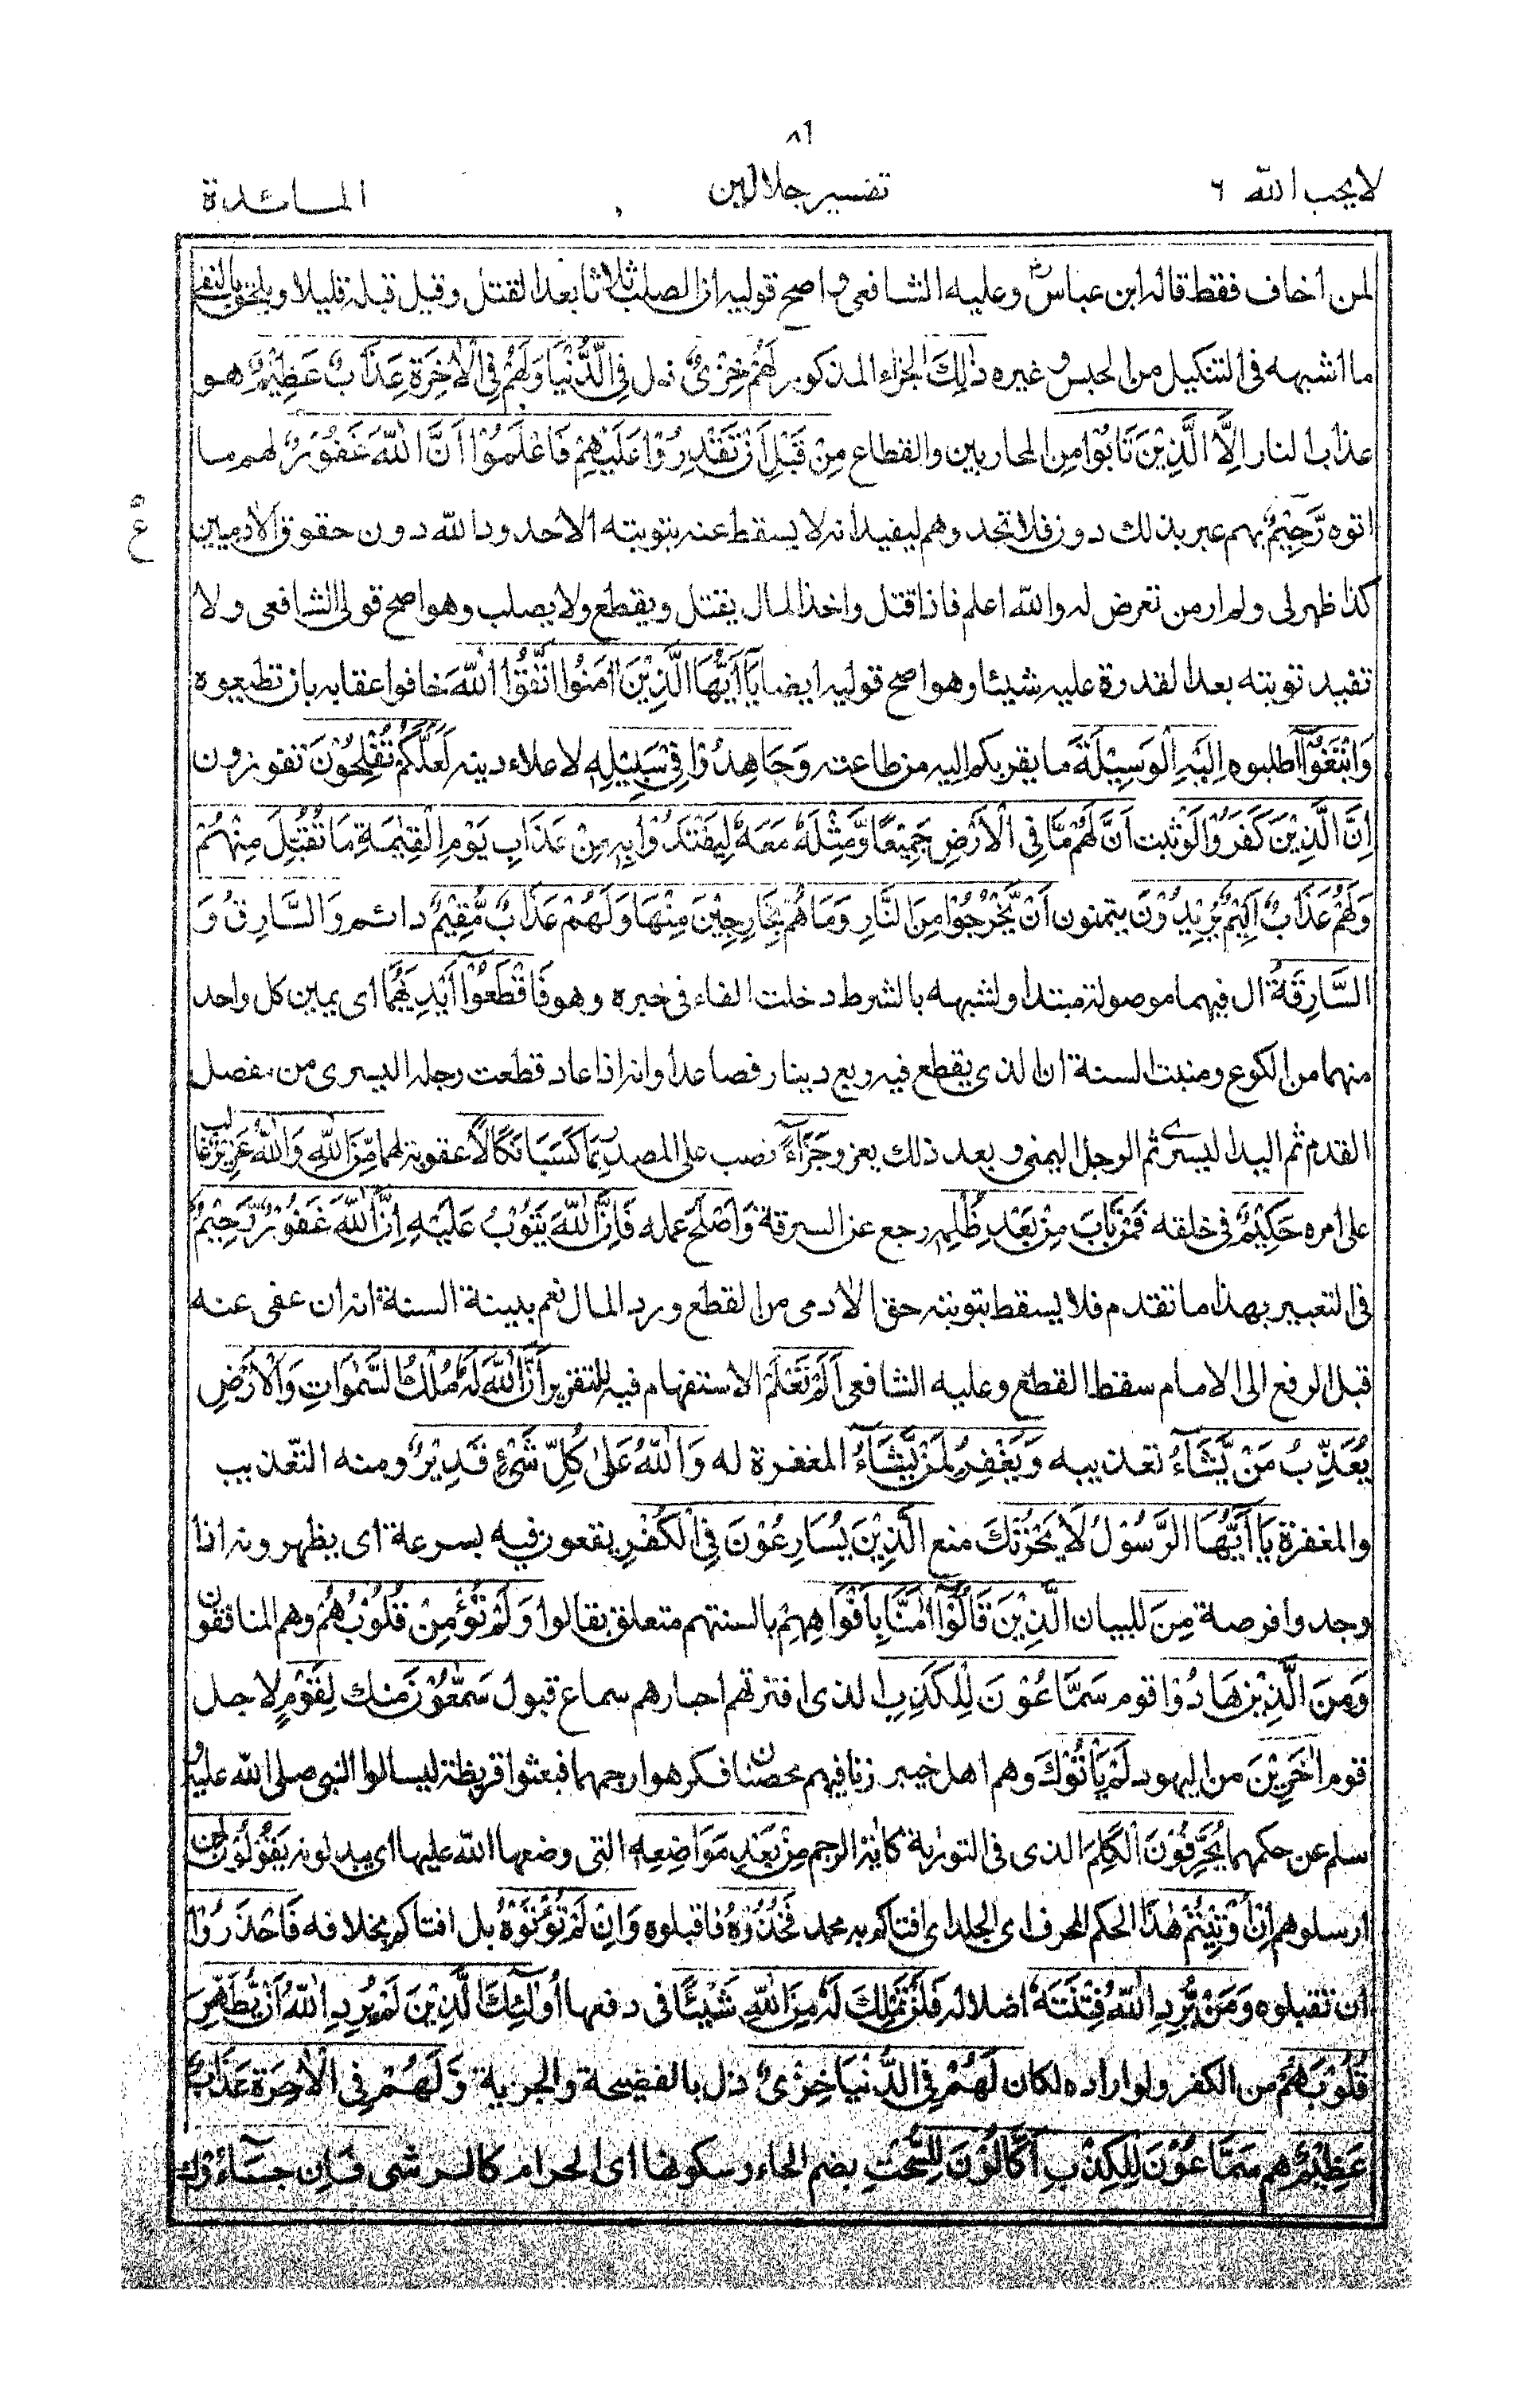 ٨٦
لايحب الله ٦ تفسير جلالين المائدة
لمن اخاف فقط قاله ابن عباس رض وعليه الشافعى واصح قوليه ان الصلب ثلاثا بعد القتل وقيل قبله قليلا ويلحق بالنفى
ما اشبهه فى التنكيل من الحبس وغيره ذٰلِكَ الجزاء المذكور لَهُمْ خِزْىٌ ذل فِى الدُّنْيَا وَلَهُمْ فِى الْاٰخِرَةِ عَذَابٌ عَظِيْمٌ هو
عذاب النار اِلَّا الَّذِيْنَ تَابُوْا مِن المحاربين والقطاع مِنْ قَبْلِ اَنْ تَقْدِرُوْا عَلَيْهِمْ فَاعْلَمُوْا اَنَّ اللّٰهَ غَفُوْرٌ لهم ما
اتوه رَّحِيْمٌ بهم عبر بذلك دون فلا تحدوهم ليفيد انه لا يسقط عنه بتوبته الاحدود الله دون حقوق الاٰدميين
ع
كذا ظهر لى ولم ار من تعرض له والله اعلم فاذا قتل واخذ المال يقتل ويقطع ولا يصلب وهو اصح قولى الشافعى ولا
تفيد توبته بعد القدرة عليه شيئا وهو اصح قوليه ايضا يَآ اَيُّهَا الَّذِيْنَ اٰمَنُوا اتَّقُوا اللّٰهَ خافوا عقابه بان تطيعوه
وَابْتَغُوْٓا اطلبوه اِلَيْهِ الْوَسِيْلَةَ ما يقربكم اليه من طاعته وَجَاهِدُوْا فِىْ سَبِيْلِهٖ لاعلاء دينه لَعَلَّكُمْ تُفْلِحُوْنَ تفوزون
اِنَّ الَّذِيْنَ كَفَرُوْا لَوْ ثبت اَنَّ لَهُمْ مَّا فِى الْاَرْضِ جَمِيْعًا وَّمِثْلَهٗ مَعَهٗ لِيَفْتَدُوْا بِهٖ مِنْ عَذَابِ يَوْمِ الْقِيٰمَةِ مَا تُقُبِّلَ مِنْهُمْ
وَلَهُمْ عَذَابٌ اَلِيْمٌ يُرِيْدُوْنَ يتمنون اَنْ يَّخْرُجُوْا مِنَ النَّارِ وَمَا هُمْ بِخَارِجِيْنَ مِنْهَا وَلَهُمْ عَذَابٌ مُّقِيْمٌ دائم وَالسَّارِقُ وَ
السَّارِقَةُ ال فيهما موصولة مبتدا ولشبهه بالشرط دخلت الفاء فى خبره وهو فَاقْطَعُوْٓا اَيْدِيَهُمَا اى يمين كل واحد
منهما من الكوع وبينت السنة ان الذى يقطع فيه ربع دينار فصاعدا وانه اذا عاد قطعت رجله اليسرى من مفصل
القدم ثم اليد اليسرى ثم الرجل اليمنى وبعد ذلك يعزر جَزَآءً نصب على المصدر بِمَا كَسَبَا نَكَالًا عقوبة لهما مِّنَ اللّٰهِ وَاللّٰهُ عَزِيْزٌ غالب
على امره حَكِيْمٌ فى خلقه فَمَنْ تَابَ مِنْ بَعْدِ ظُلْمِهٖ رجع عن السرقة وَاَصْلَحَ عمله فَاِنَّ اللّٰهَ يَتُوْبُ عَلَيْهِ اِنَّ اللّٰهَ غَفُوْرٌ رَّحِيْمٌ
فى التعبير بهذا ما تقدم فلا يسقط بتوبته حق الاٰدمى من القطع ورد المال نعم بينة السنة انه ان عفى عنه
قبل الرفع الى الامام سقط القطع وعليه الشافعى اَلَمْ تَعْلَمْ الاستفهام فيه للتقرير اَنَّ اللّٰهَ لَهٗ مُلْكُ السَّمٰوَاتِ وَالْاَرْضِ
يُعَذِّبُ مَنْ يَّشَآءُ تعذيبه وَيَغْفِرُ لِمَنْ يَّشَآءُ المغفرة له وَاللّٰهُ عَلٰى كُلِّ شَىْءٍ قَدِيْرٌ ومنه التعذيب
والمغفرة يَا اَيُّهَا الرَّسُوْلُ لَا يَحْزُنْكَ منع الَّذِيْنَ يُسَارِعُوْنَ فِى الْكُفْرِ يقعون فيه بسرعة اى يظهرونه اذا
وجدوا فرصة مِنَ للبيان الَّذِيْنَ قَالُوْٓا اٰمَنَّا بِاَفْوَاهِهِمْ بالسنتهم متعلق بقالوا وَلَمْ تُؤْمِنْ قُلُوْبُهُمْ وهم المنافقون
وَمِنَ الَّذِيْنَ هَادُوْا قوم سَمَّاعُوْنَ لِلْكَذِبِ الذى افترتهم احبارهم سماع قبول سَمّٰعُوْنَ منك لِقَوْمٍ لاجل
قوم اٰخَرِيْنَ من اليهود لَمْ يَأْتُوْكَ وهم اهل خيبر زنا فيهم محصنان فكرهوا رجمهما فبعثوا قريظة ليسالوا النبى صلى الله عليه و
سلم عن حكمهما يُحَرِّفُوْنَ الْكَلِمَ الذى فى التورٰية كاٰية الرجم مِنْ بَعْدِ مَوَاضِعِهٖ التى وضعها الله عليها اى يبدلونه يَقُوْلُوْنَ لمن
ارسلوهم اِنْ اُوْتِيْتُمْ هٰذَا الحكم المحرف اى الجلد اى افتاكم به محمد فَخُذُوْهُ فاقبلوه وَاِنْ لَمْ تُؤْتَوْهُ بل افتاكم بخلافه فَاحْذَرُوْا
ان تقبلوه وَمَنْ يُّرِدِ اللّٰهُ فِتْنَتَهٗ اضلاله فَلَنْ تَمْلِكَ لَهٗ مِنَ اللّٰهِ شَيْئًا فى دفعها اُولٰٓئِكَ الَّذِيْنَ لَمْ يُرِدِ اللّٰهُ اَنْ يُّطَهِّرَ
قُلُوْبَهُمْ من الكفر ولو اراده لكان لَهُمْ فِى الدُّنْيَا خِزْىٌ ذل بالفضيحة والجزية وَلَهُمْ فِى الْاٰخِرَةِ عَذَابٌ
عَظِيْمٌ هم سَمَّاعُوْنَ لِلْكَذِبِ اَكّٰلُوْنَ لِلسُّحْتِ بضم الحاء وسكونها اى الحرام كالرشى فَاِنْ جَآءُوْكَ